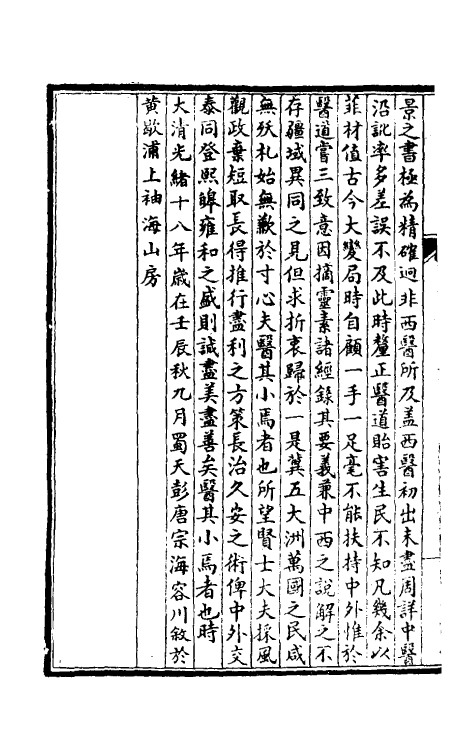 景之書極為精確迥非西醫所及盖西醫初出未盡周詳中醫
沿訛率多差誤不及此時釐正醫道貽害生民不知凡幾余以
菲材值古今大變局時自顧一手一足毫不能扶持中外惟於
醫道嘗三致意因摘靈素諸經錄其要義兼中西之說解之不
存疆域異同之見但求折衷歸於一是冀五大洲萬國之民咸
無夭札始無歉於寸心夫醫其小焉者也所望賢士大夫採風
觀政棄短取長得推行盡利之方策長治久安之術俾中外交
泰同登熙皞雍和之盛則誠盡美盡善矣醫其小焉者也時
大清光緒十八年歲在壬辰秋九月蜀天彭唐宗海容川敘於
黄歇浦上袖海山房